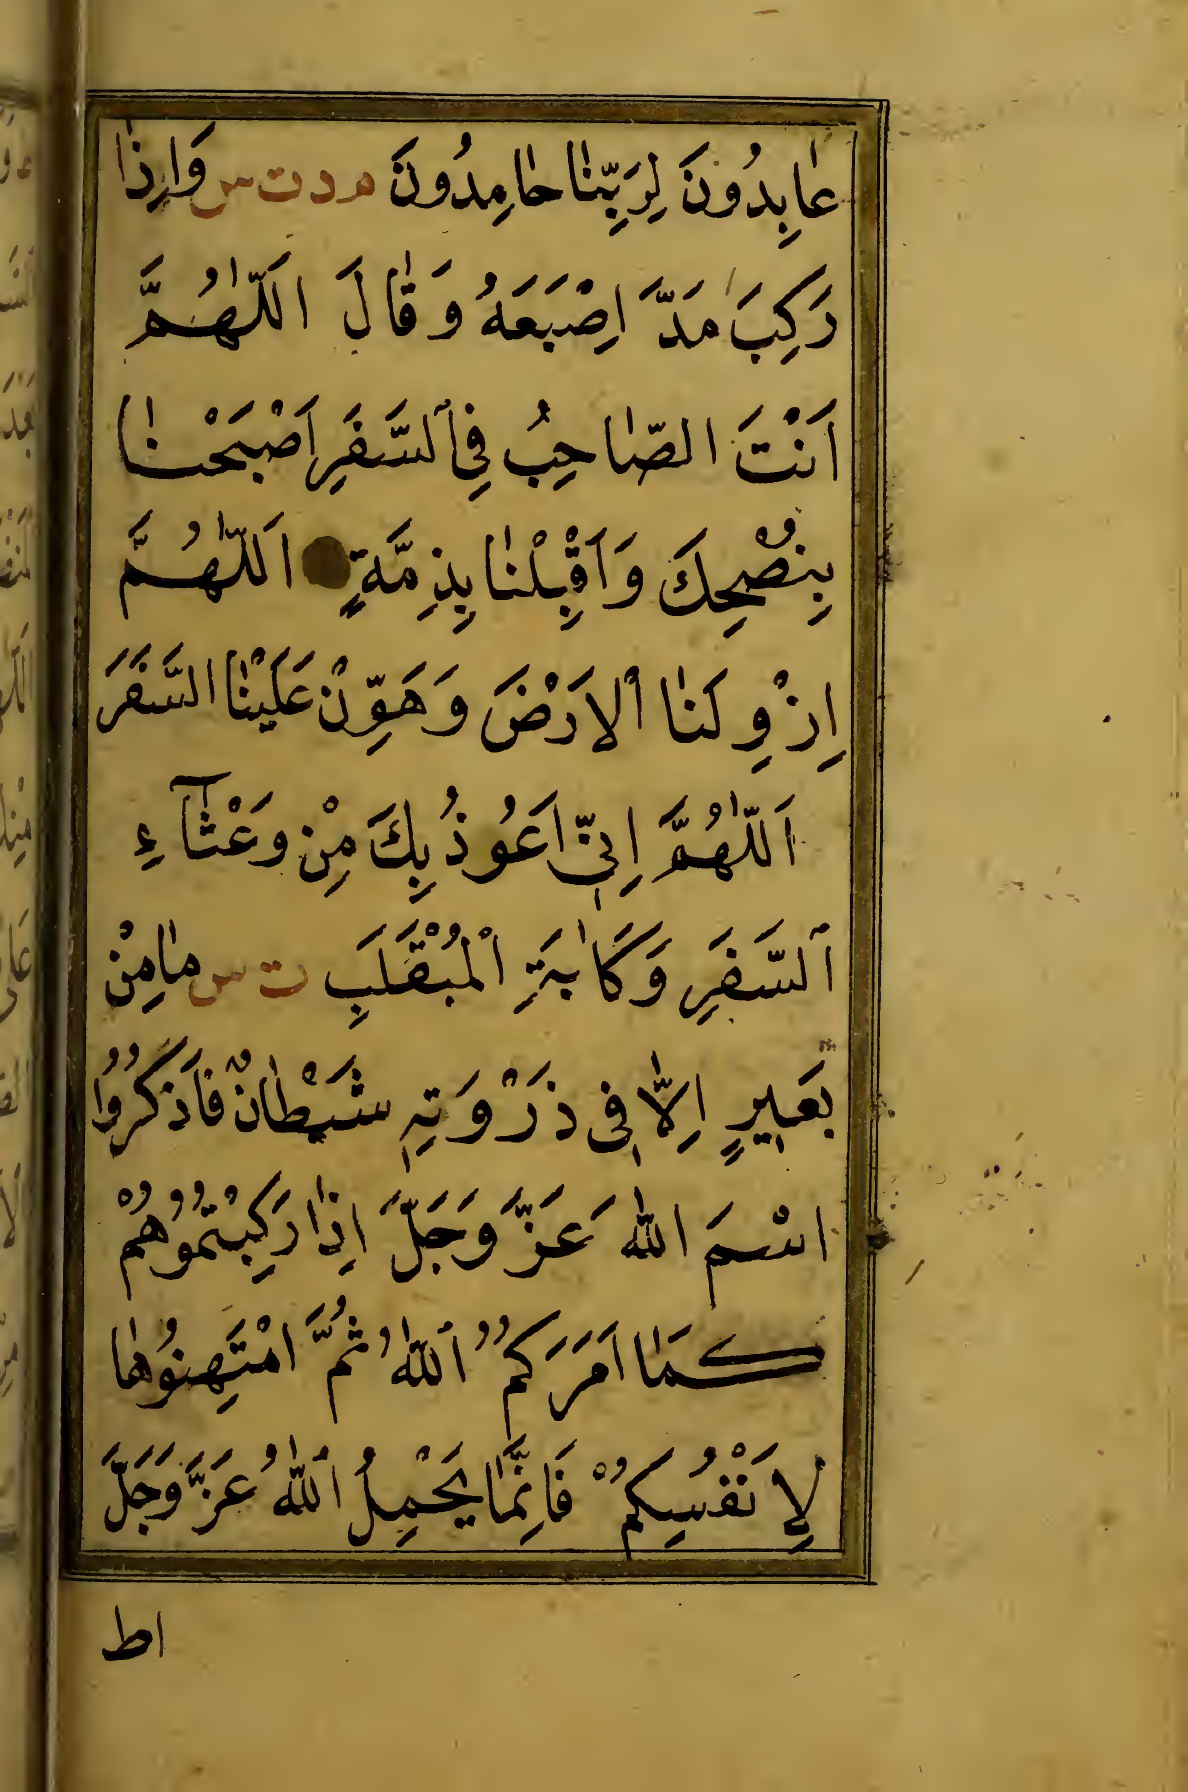 عَابِدُونَ لِرَبِّنَا حَامِدُونَ م د ت س وَاِذَا
رَكِبَ مَدَّ اِصْبَعَهُ وَقَالَ اَللّٰهُمَّ
اَنْتَ الصَّاحِبُ فِي السَّفَرِ اَصْبَحْنَا
بِنُصْحِكَ وَاَقْبِلْنَا بِذِمَّةٍ اَللّٰهُمَّ
اِزْوِ لَنَا الْاَرْضَ وَهَوِّنْ عَلَيْنَا السَّفَرَ
اَللّٰهُمَّ اِنِّي اَعُوذُ بِكَ مِنْ وَعْثَآءِ
السَّفَرِ وَكَاٰبَةِ الْمُنْقَلَبِ ت س مَا مِنْ
بَعِيرٍ اِلَّا فِي ذَرْوَتِهِ شَيْطَانٌ فَاذْكُرُوا
اسْمَ اللّٰه عَزَّ وَجَلَّ اِذَا رَكِبْتُمُوُهُمْ
كَمَا اَمَرَكُمُ اللّٰهُ ثُمَّ امْتَهِنُوُهَا
لِاَنْفُسِكُمْ فَاِنَّمَا يَحْمِلُ اللّٰهُ عَزَّ وَجَلَّ
اط